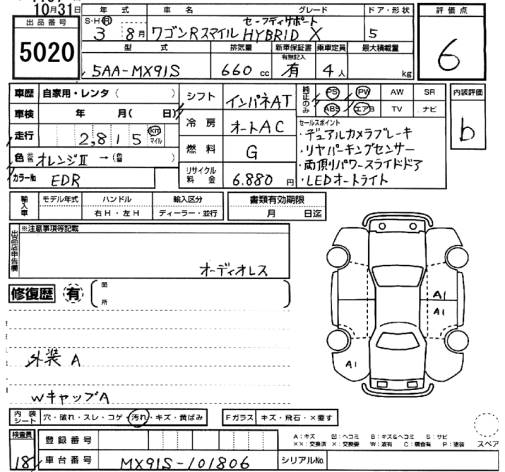 10月31日
出品番号
5020
年式
グレード
ドア・形状
評価点
S・H・R 3 8月
セーフティサポート
ワゴンRスマイル HYBRID X
5
6
型式
排気量
新車保証書
有無記入
乗車定員
最大積載量
5AA-MX91S
660 cc
有
4人
kg
車歴
自家用・レンタ( )
シフト
インパネAT
純正のみ
PS PW AW SR
ABS エアB TV ナビ
内装評価
b
車検
年 月( 日)
冷房
オートAC
セールスポイント
・デュアルカメラブレーキ
・リヤパーキングセンサー
・両側パワースライドドア
・LEDオートライト
走行
2,815 km マイル
燃料
G
色
オレンジⅡ → (色替)
カラーNo.
EDR
リサイクル料金
6,880円
輸入車
モデル年式
ハンドル
輸入区分
書類有効期限
右H・左H
ディーラー・並行
月 日迄
出品店申告欄
※注意事項等記載
オーディオレス
修復歴 有
箇所
A1
A1
A1
外装 A
WキャップA
内装シート
穴・破れ・スレ・コゲ・汚れ・キズ・黄ばみ
Fガラス
キズ・飛石・×要す
検査員
18
登録番号
車台番号
MX91S-101806
シリアルNo.
A:キズ U:凹ヘコミ B:キズ&ヘコミ S:サビ
××:交換済 ×:交換要 W:波有 C:腐食有 P:塗装
スペア